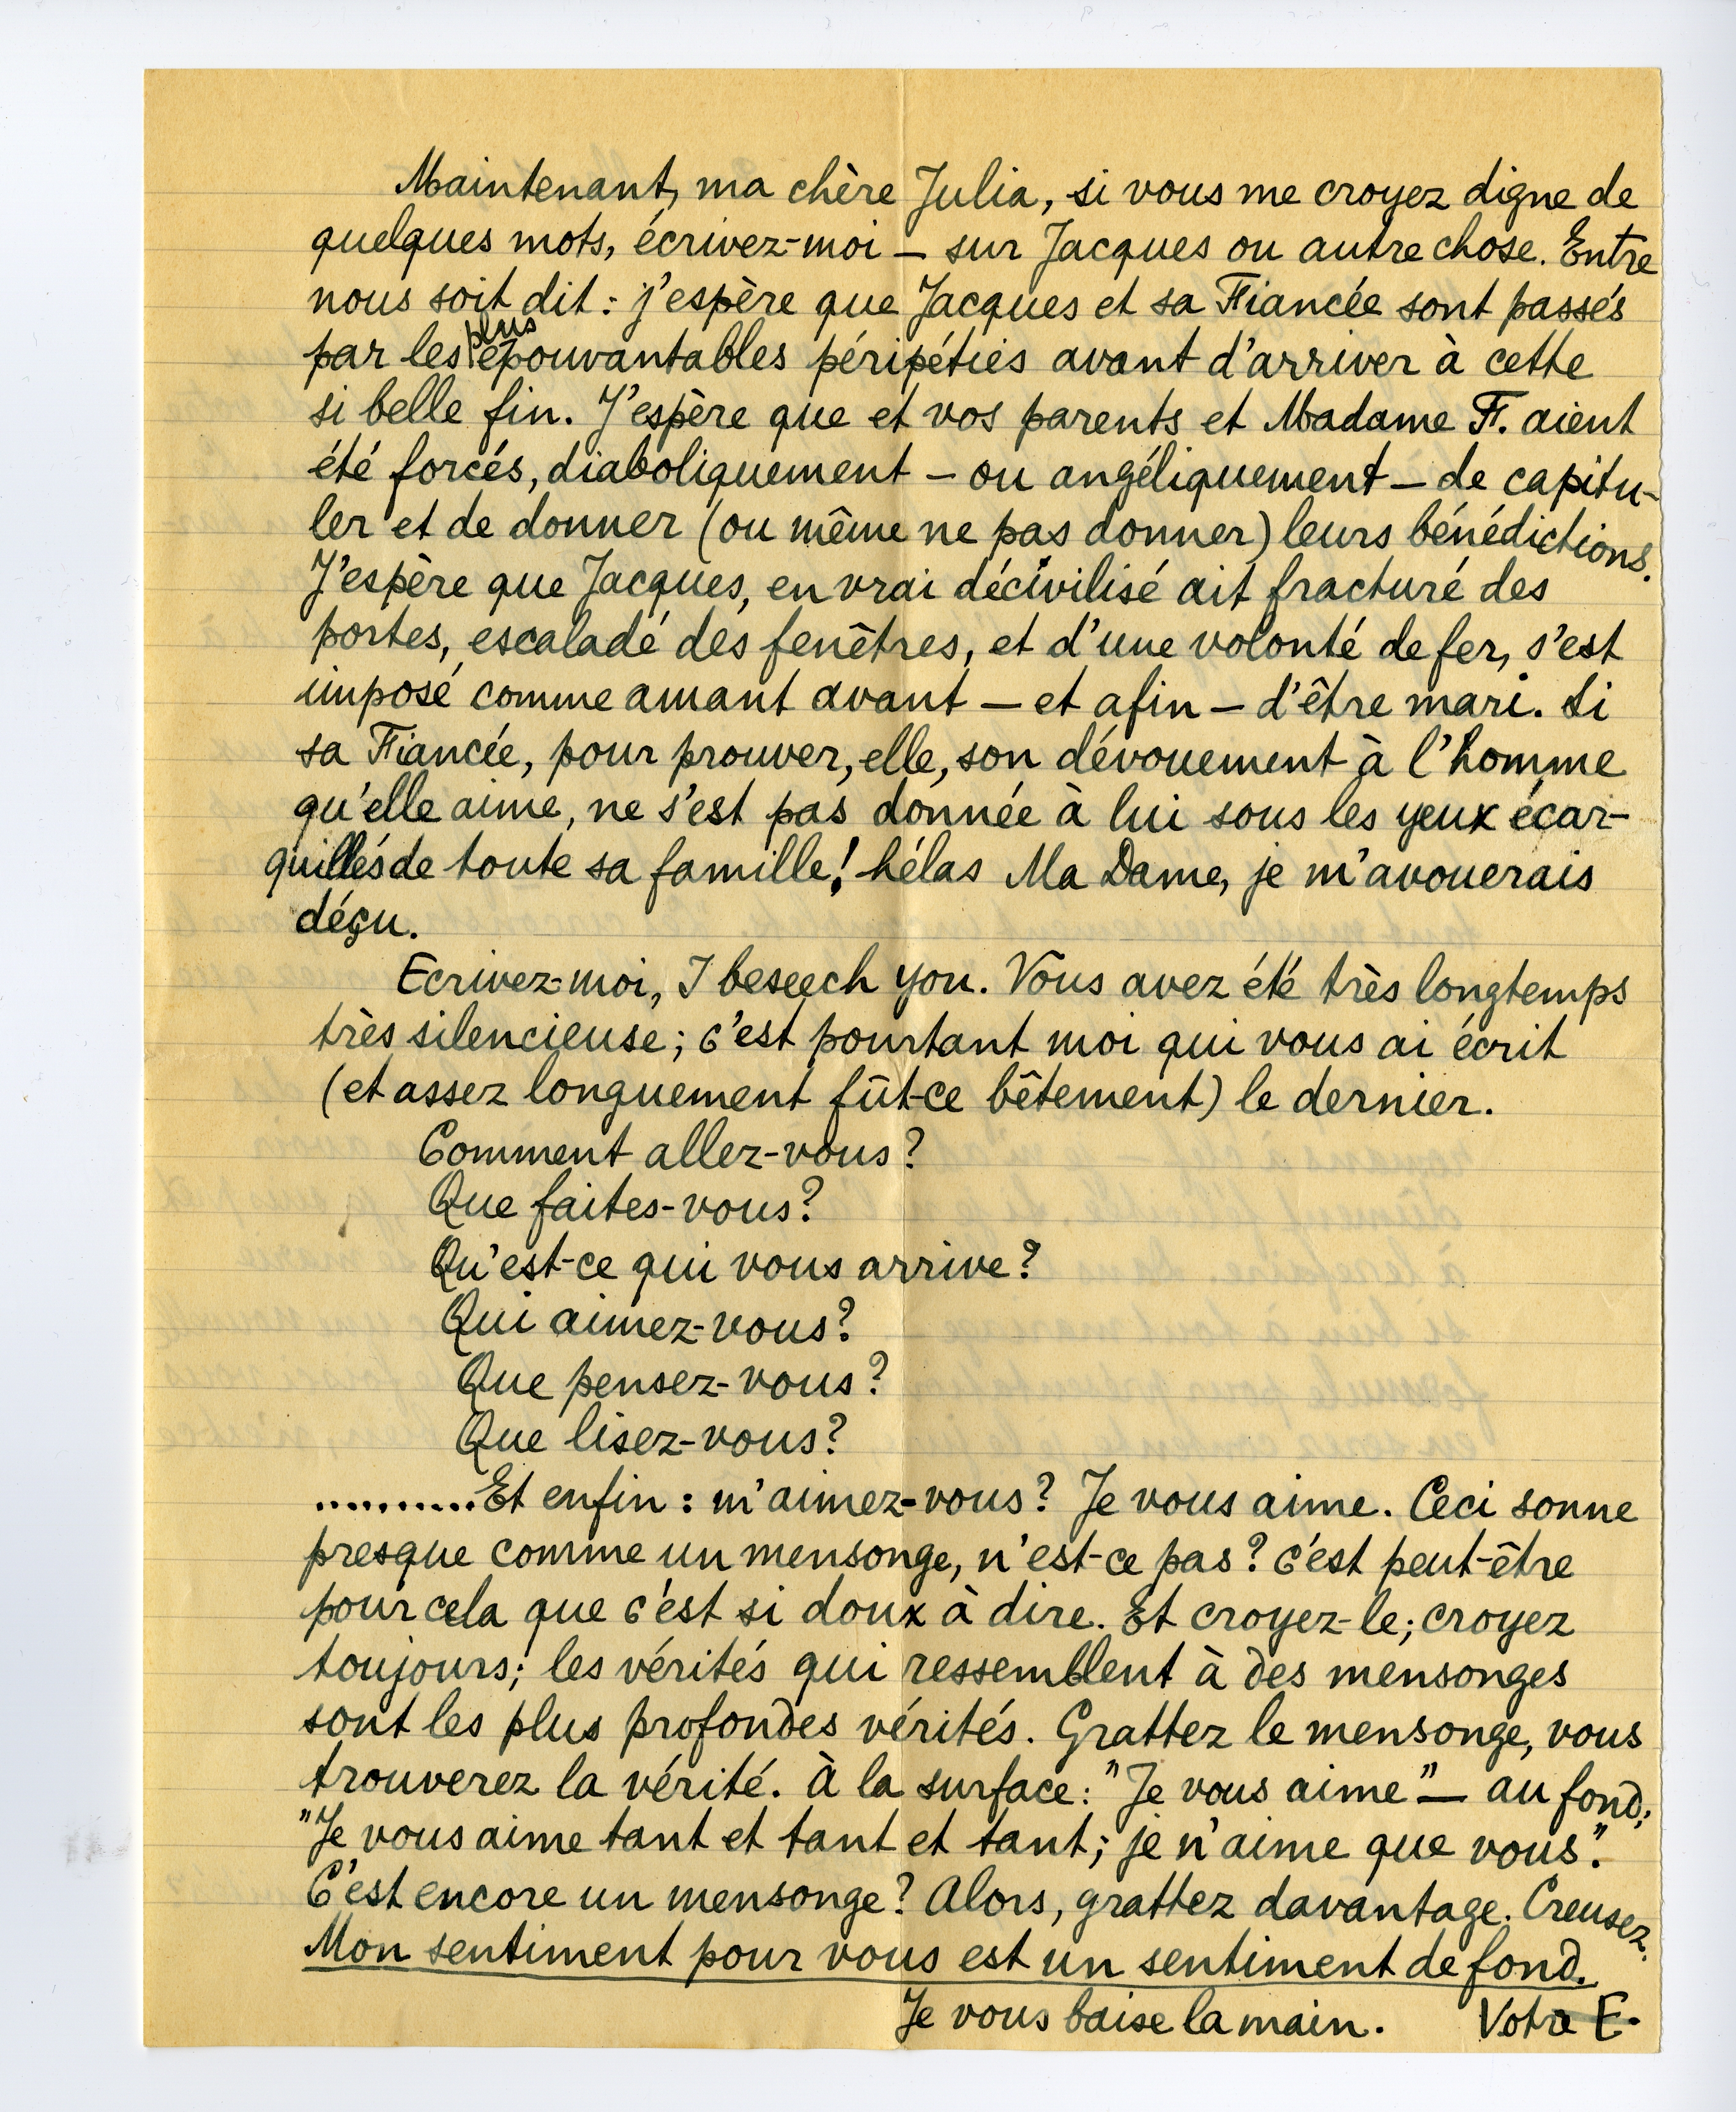 Maintenant, ma chère Julia, si vous me croyez digne de
quelques mots, écrivez-moi — sur Jacques ou autre chose. Entre
nous soit dit : j'espère que Jacques et sa Fiancée sont passés
par les plus épouvantables péripéties avant d'arriver à cette
si belle fin. J'espère que et vos parents et Madame F. aient
été forcés, diaboliquement — ou angéliquement — de capitu-
ler et de donner (ou même ne pas donner) leurs bénédictions.
J'espère que Jacques, en vrai décivilisé ait fracturé des
portes, escaladé des fenêtres, et d'une volonté de fer, s'est
imposé comme amant avant — et afin — d'être mari. Si
sa Fiancée, pour prouver, elle, son dévouement à l'homme
qu'elle aime, ne s'est pas donnée à lui sous les yeux écar-
quillés de toute sa famille! hélas Ma Dame, je m'avouerais
déçu.
Ecrivez-moi, I beseech you. Vous avez été très longtemps
très silencieuse; c'est pourtant moi qui vous ai écrit
(et assez longuement fût-ce bêtement) le dernier.
Comment allez-vous?
Que faites-vous?
Qu'est-ce qui vous arrive?
Qui aimez-vous?
Que pensez-vous?
Que lisez-vous?
..........Et enfin : m'aimez-vous? Je vous aime. Ceci sonne
presque comme un mensonge, n'est-ce pas? c'est peut-être
pour cela que c'est si doux à dire. Et croyez-le; croyez
toujours; les vérités qui ressemblent à des mensonges
sont les plus profondes vérités. Grattez le mensonge, vous
trouverez la vérité. à la surface: "Je vous aime" — au fond:
"Je vous aime tant et tant et tant; je n'aime que vous".
C'est encore un mensonge? Alors, grattez davantage. Creusez.
Mon sentiment pour vous est un sentiment de fond.
Je vous baise la main. Votre E.